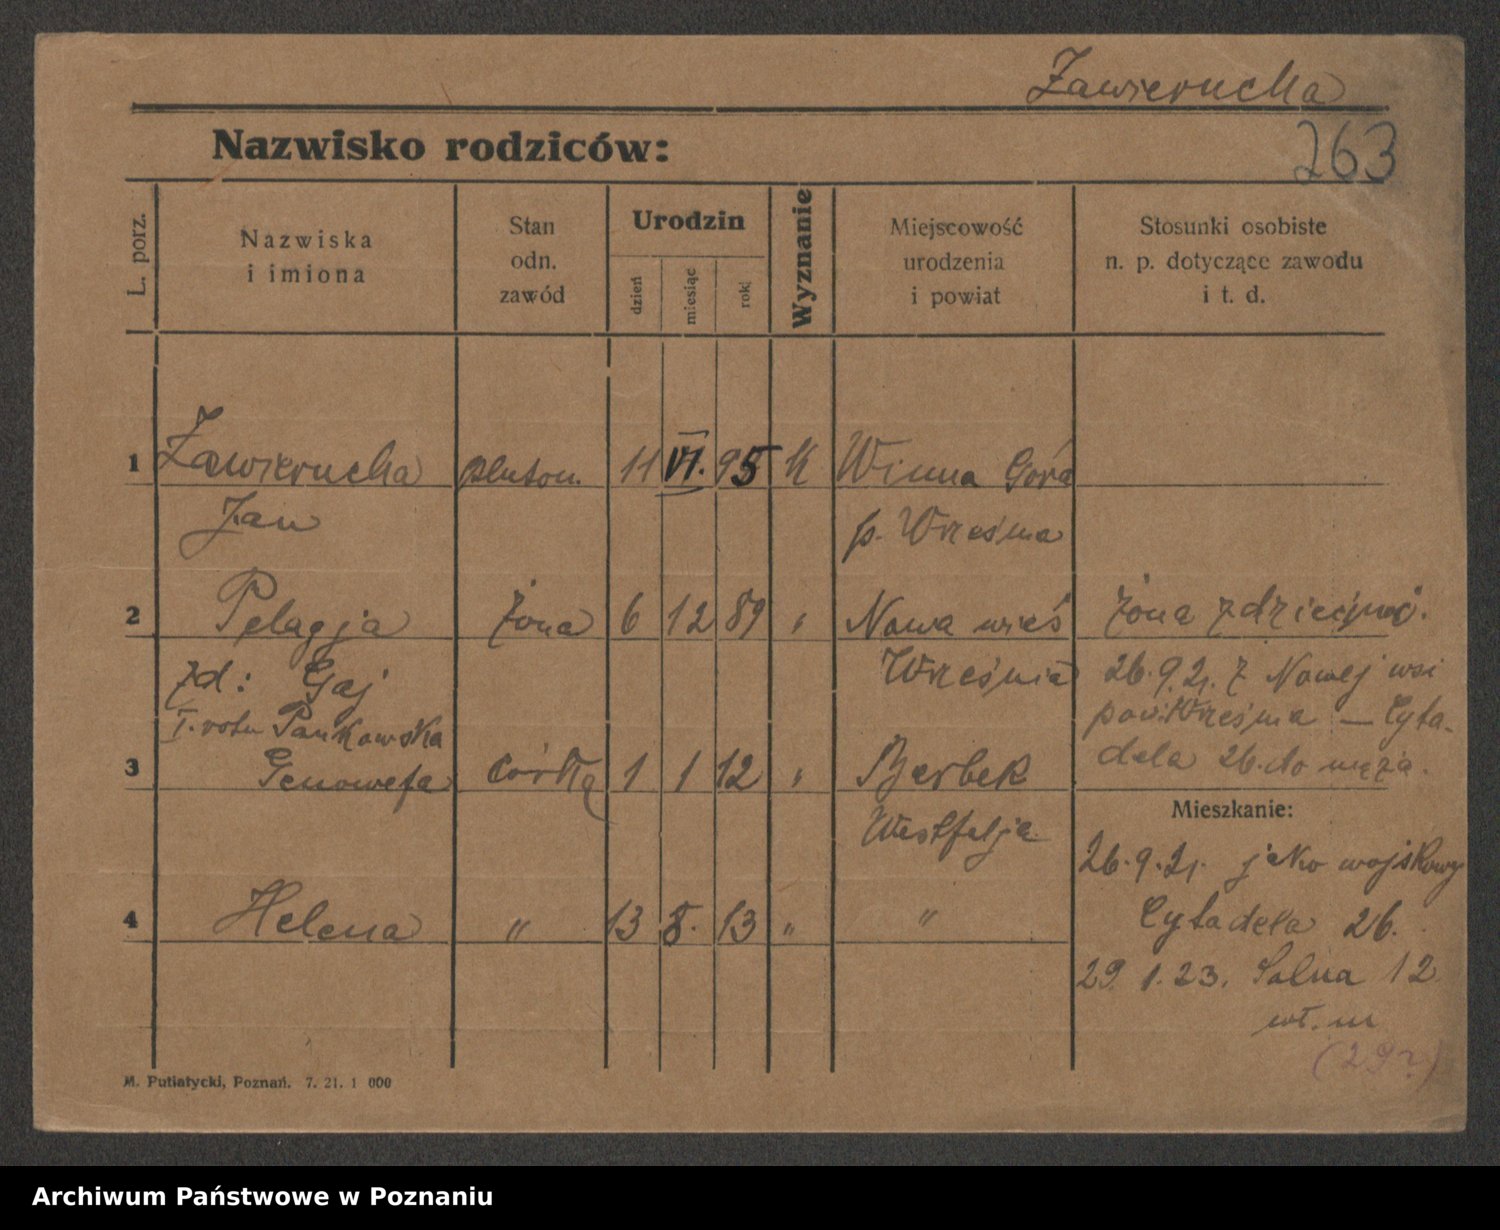 Zawierucha
Nazwisko rodziców:
263
L. porz.
Nazwiska
i imiona
Stan
odn.
zawód
Urodzin
dzień
miesiąc
rok
Wyznanie
Miejscowość
urodzenia
i powiat
Stosunki osobiste
n. p. dotyczące zawodu
i t. d.
1 Zawierucha pluton. 11 VI. 95 K Winna Góra
Jan p. Wreśnia
2 Pelagja żona 6 12 89 " Nowa wieś żona z dziećmi.
zd: Gaj Wreśnia 26.9.21. z Nowej wsi
I. votu Pankowska pow. Wreśnia — Cyta-
3 Genowefa córka 1 1 12 " Berbek dela 26. do męża.
Westfalja
Mieszkanie:
26.9.21. jako wojskowy
4 Helena " 13 8. 13 " " Cytadela 26.
29 1.23. Solna 12
wł. m
(29r)
M. Putiatycki, Poznań. 7. 21. 1 000
Archiwum Państwowe w Poznaniu